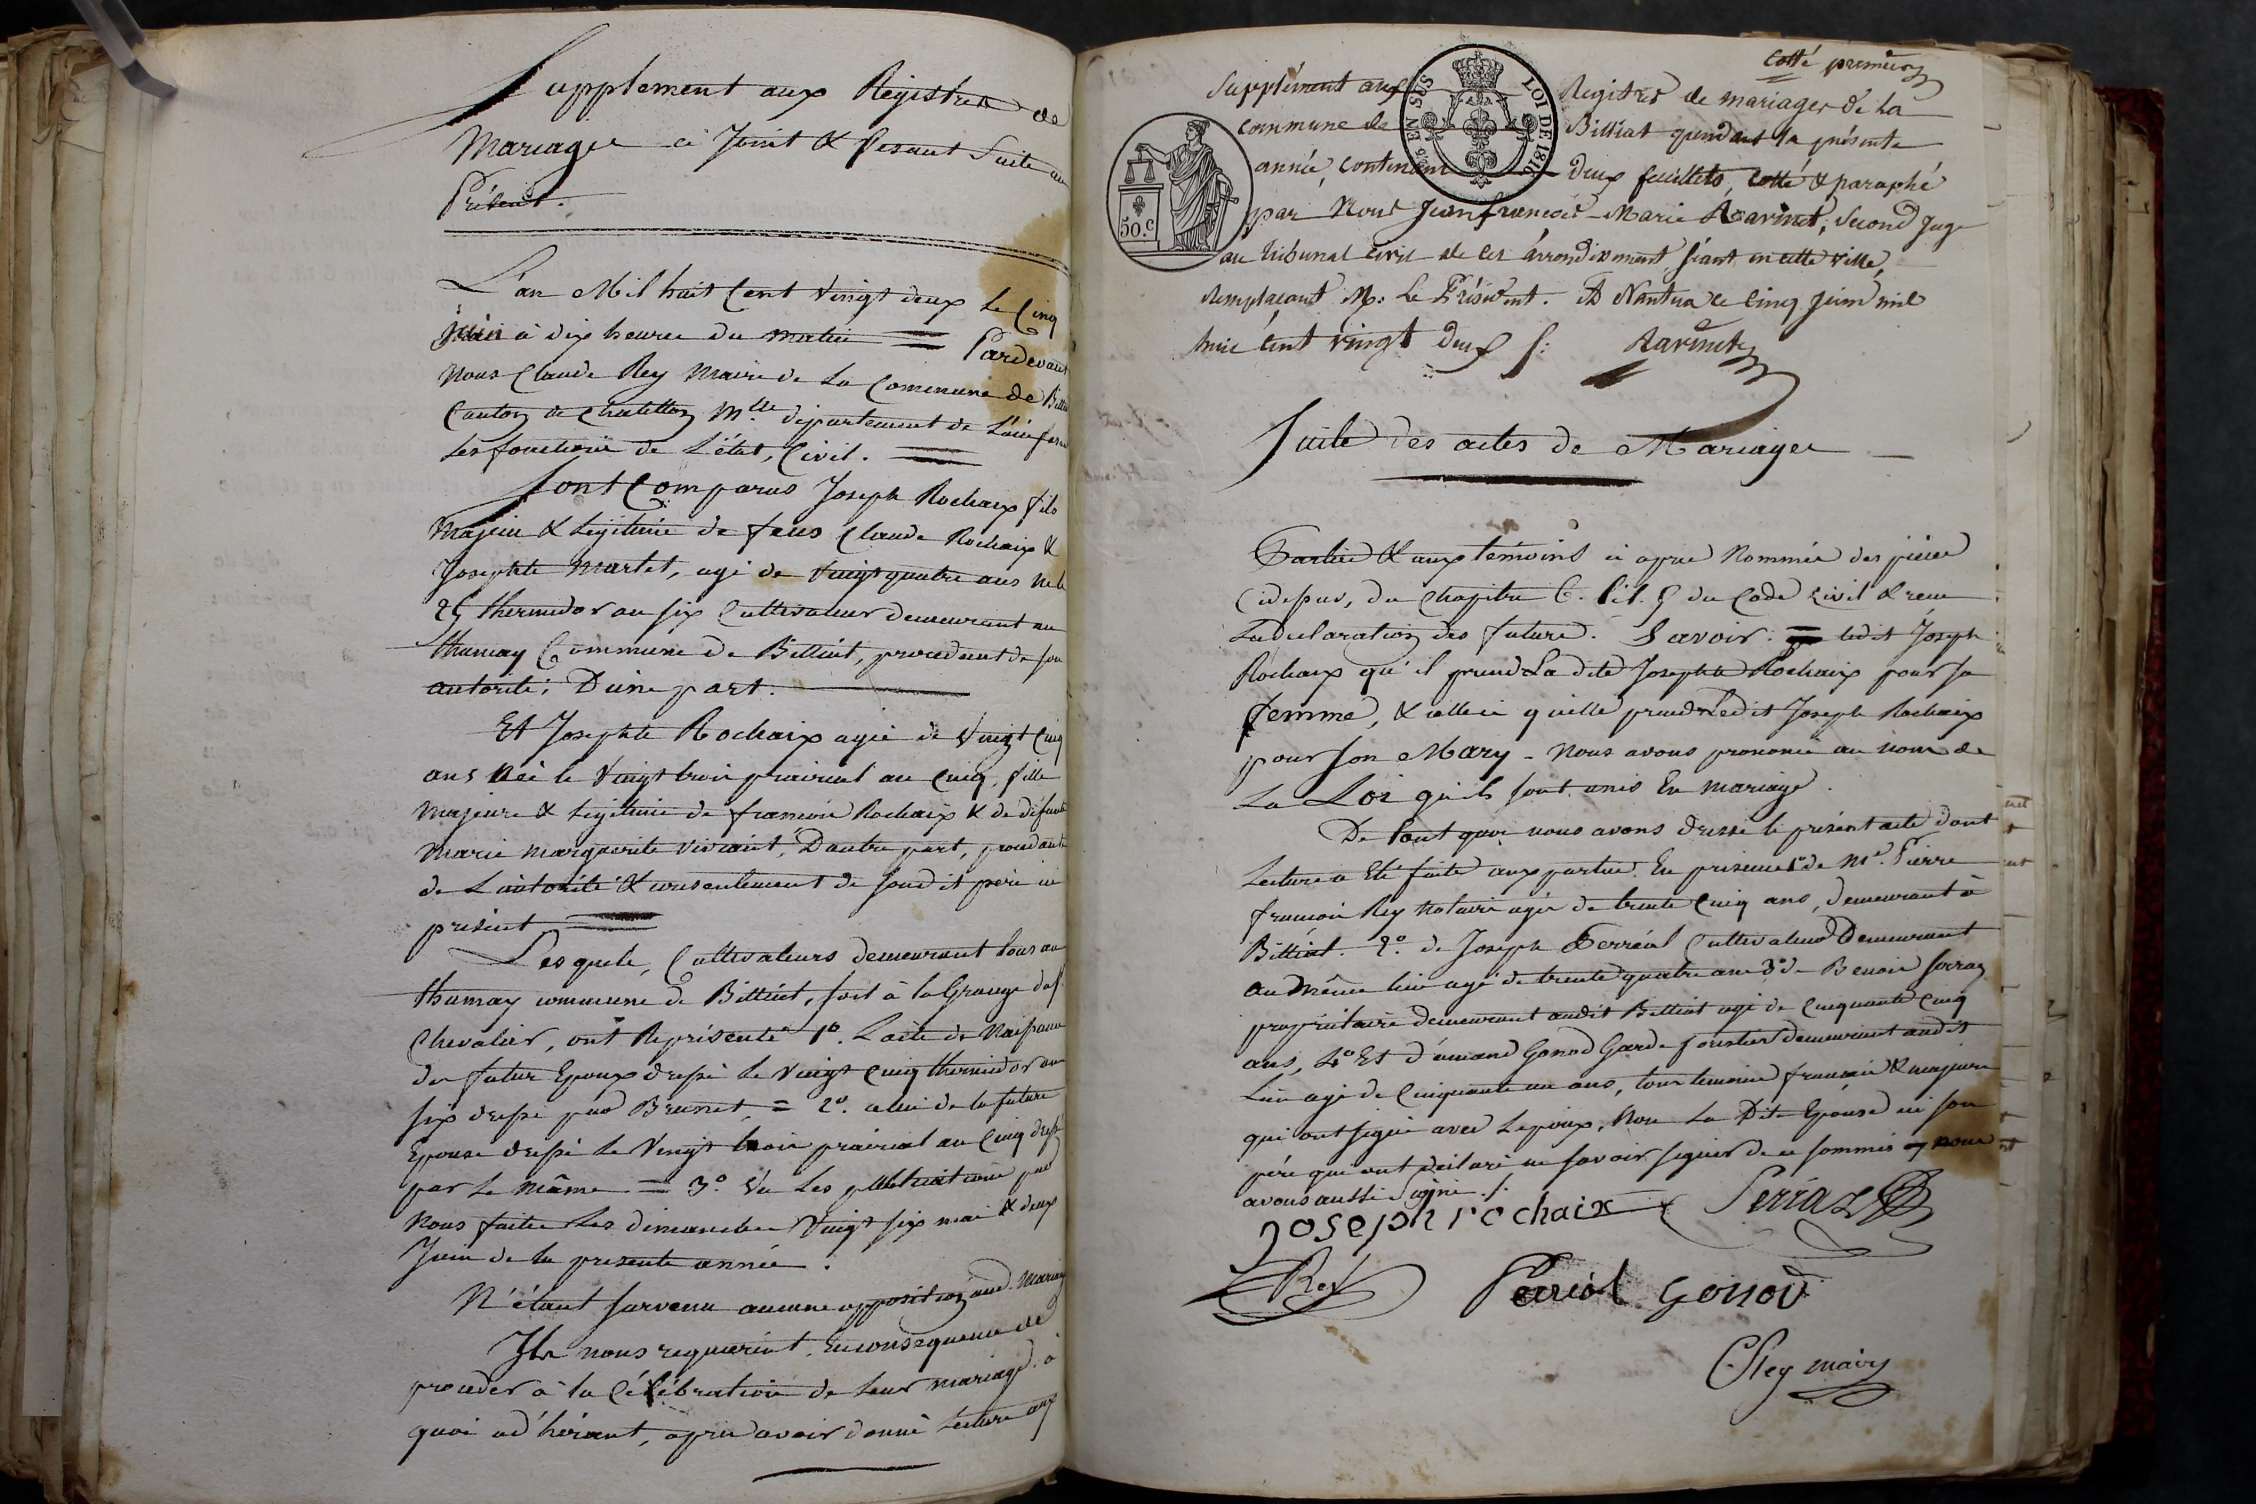 Supplement aux Régistres de
Mariages ci Joint & fesant Suite au
Présent.
L'an Mil huit Cent vingt deux le Cinq
juin à dix heures du matin = Pardevant
Nous Claude Rey Maire de la Commune de Billiat
Canton de Chatillon Mlle département de L'ain fesant
les fonctions de L'état, Civil.
Sont Comparus Joseph Rochaix fils
Majeur & Légitime de feus Claude Rochaix &
Josephte Martet, agé de vingt quatre ans né le
25 thermidor an six Cultivateur demeurant au
thumay Commune de Billiat, procedant de son
autorité; D'une part.
Et Josephte Rochaix agée de Vingt Cinq
ans née le Vingt trois prairial an cinq, fille
Majeure & Légitime de francois Rochaix & de défunte
Marie Marguerite Vivant, D'autre part, procedante
de L'autorité & consentement de sondit père ici
présent
Lesquels, Cultivateurs demeurant tous au
thumay commune de Billiat, soit à la Grange du
Chevalier, ont Représenté 1º. L'acte de Naissance
du futur Epoux dressé le vingt cinq thermidor an
six dressé par Brunet, = 2º. celui de la future
Epouse dressé le Vingt trois prairial an Cinq dressé
par le même = 3º. Vu les publications par
Nous faites les dimanches Vingt six mai & deux
Juin de la presente année.
N'étant survenu aucune opposition aud. Mariage
Ils nous requierint. En consequence de
proceder à la Célébration de leur mariage. à
quoi ad'hérant, après avoir donné Lecture aux
Cotté premier
Supplément aux Registres de mariages de la
commune de Billiat pendant la présente
année, contenant deux feuillets, Cotté & paraphé
par Nous Jean françois-Marie Ravinet, Second Juge
au tribunal Civil de cet arrondissement séant en cette ville,
remplaçant M. Le Président. A Nantua ce cinq juin mil
huit cent vingt deux /: Ravinet
EN SUS
LOI DE 1816
50.c
Suite des actes de Mariages
Parties & aux temoins ci après Nommés des pièces
Cidessus, du Chapitre 6. tit. 5 du Code civil & recu
La déclaration des futurs. Savoir: = ledit Joseph
Rochaix qu'il prend La dite Josephte Rochaix pour sa
femme, & celleci qu'elle prend Ledit Joseph Rochaix
pour son Mary - Nous avons prononcé au nom de
La Loi qu'ils sont unis En mariage.
De tout quoi nous avons dressé le présent acte dont
Lecture a Eté faite aux parties. En présence 1º de Me. Pierre
francois Rey Notaire agé de trente Cinq ans, demeurant à
Billiat. 2º. de Joseph Perréal Cultivateur Demeurant
au Même lieu agé de trente quatre ans 3º de Benoit
proprietaire demeurant audit Billiat agé de Cinquante Cinq
ans, 4º Et d'amand Gonod Garde forestier demeurant audit
Lieu agé de Cinquante un ans, tous temoins francais & majeurs
qui ont signé avec L'epoux, Non La Dite Epouse ni son
père qui ont déclaré ne savoir signer de ce sommés & nous
avons aussi Signé./.
Joseph rochaix
Rey Gonod
C Rey maire